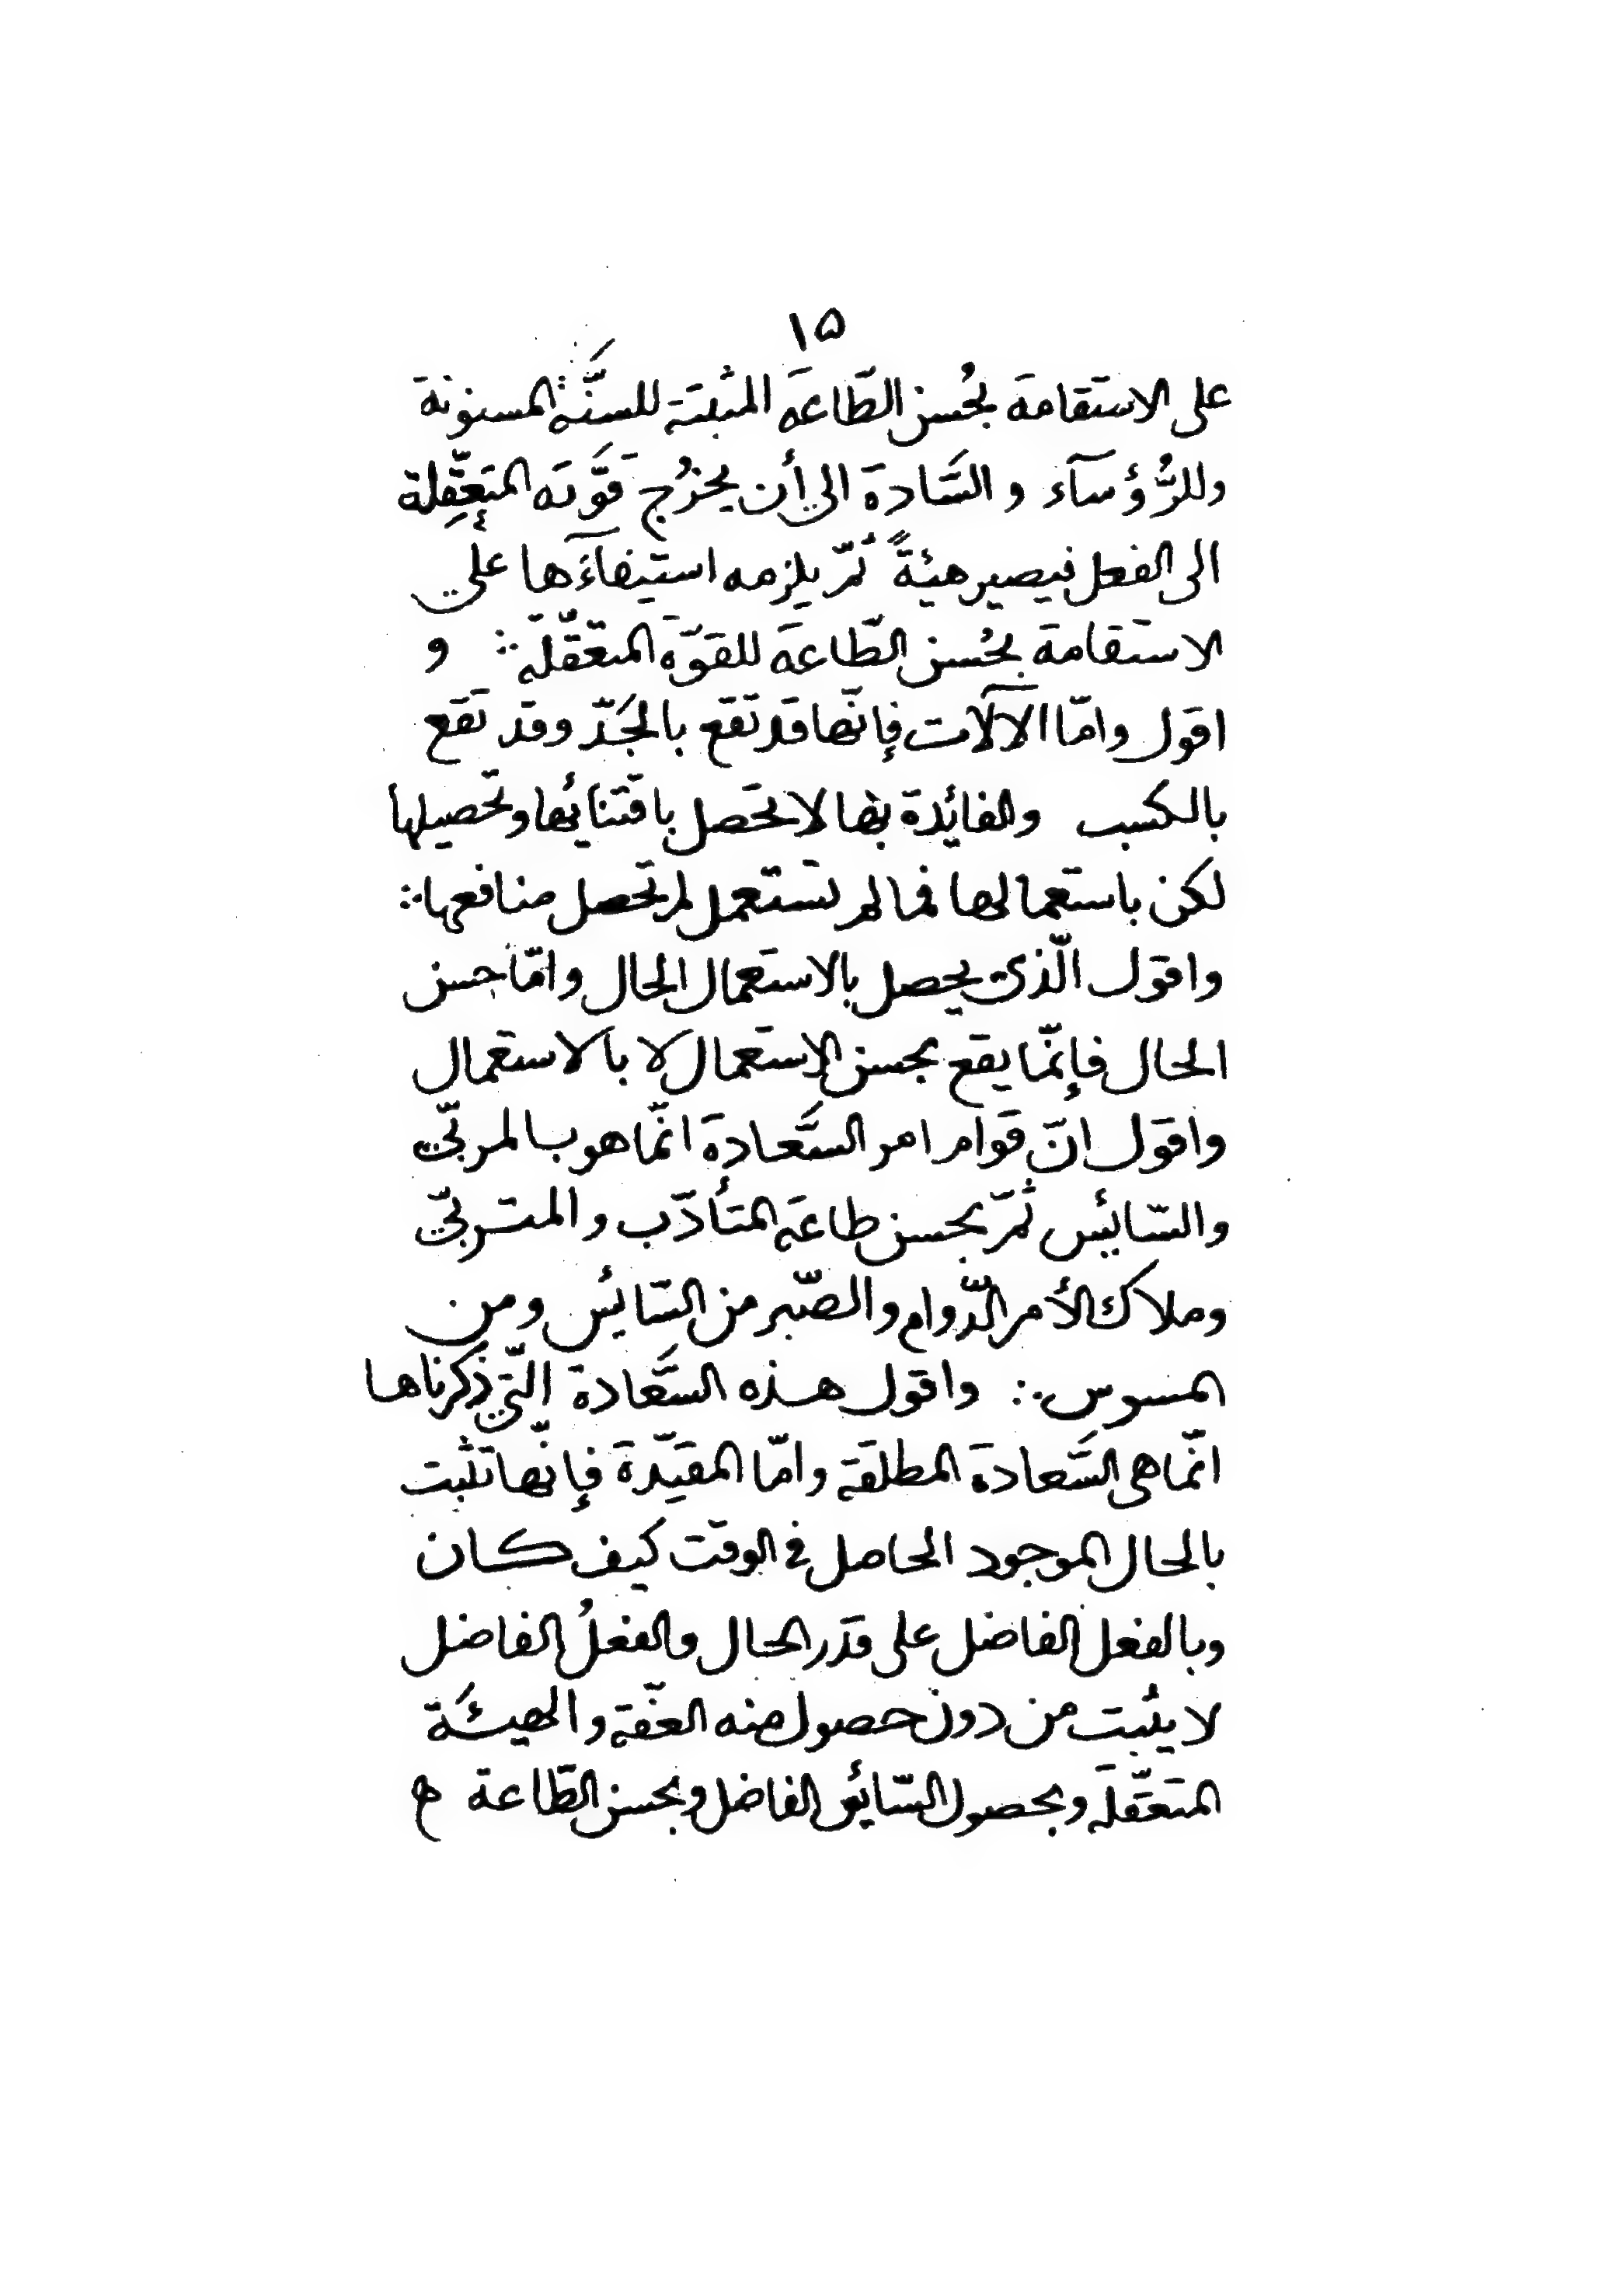 ١۵
على الاستقامة بحُسن الطّاعة المثبتة للسنَّة المسنونة
وللرُّؤسآء والسَّادة الى أن يخرُج قوَّته المتعقِّلة
الى الفعل فيصير هيئةً ثمّ يلزمه استيفآءَها على
الاستقامة بحُسن الطّاعة للقوّة المتعقّلة ∴ و
اقول وامّا الآلات فإنّها قد تقع بالجَدّ وقد تقع
بالكسب والفائدة بها لا تحصل باقتنائها وتحصيلها
لكن باستعمالها فما لم تستعمل لم تحصل منافعها ∴
واقول الّذى يحصل بالاستعمال الحال وامّا حسن
الحال فإنّما يقع بحسن الإستعمال لا بالاستعمال
واقول انّ قوام امر السَّعادة انّما هو بالمربّي
والسّائِس ثمّ بحسن طاعة المتأدّب والمتربّي
وملاك الأمر الدّوام والصّبر من السّائِس ومن
المسوس ∴ واقول هذه السَّعادة الّتي ذكرناها
انّما هى السَّعادة المطلقة وامّا المقيّدة فإنّها تثبت
بالحال الموجود الحاصل في الوقت كيف كان
وبالفعل الفاضل على قدر الحال والفعلُ الفاضل
لا يثبت من دون حصول منه العفّة والهيئَة
المتعقّلة وبحصول السّائس الفاضل وبحسن الطّاعة ح